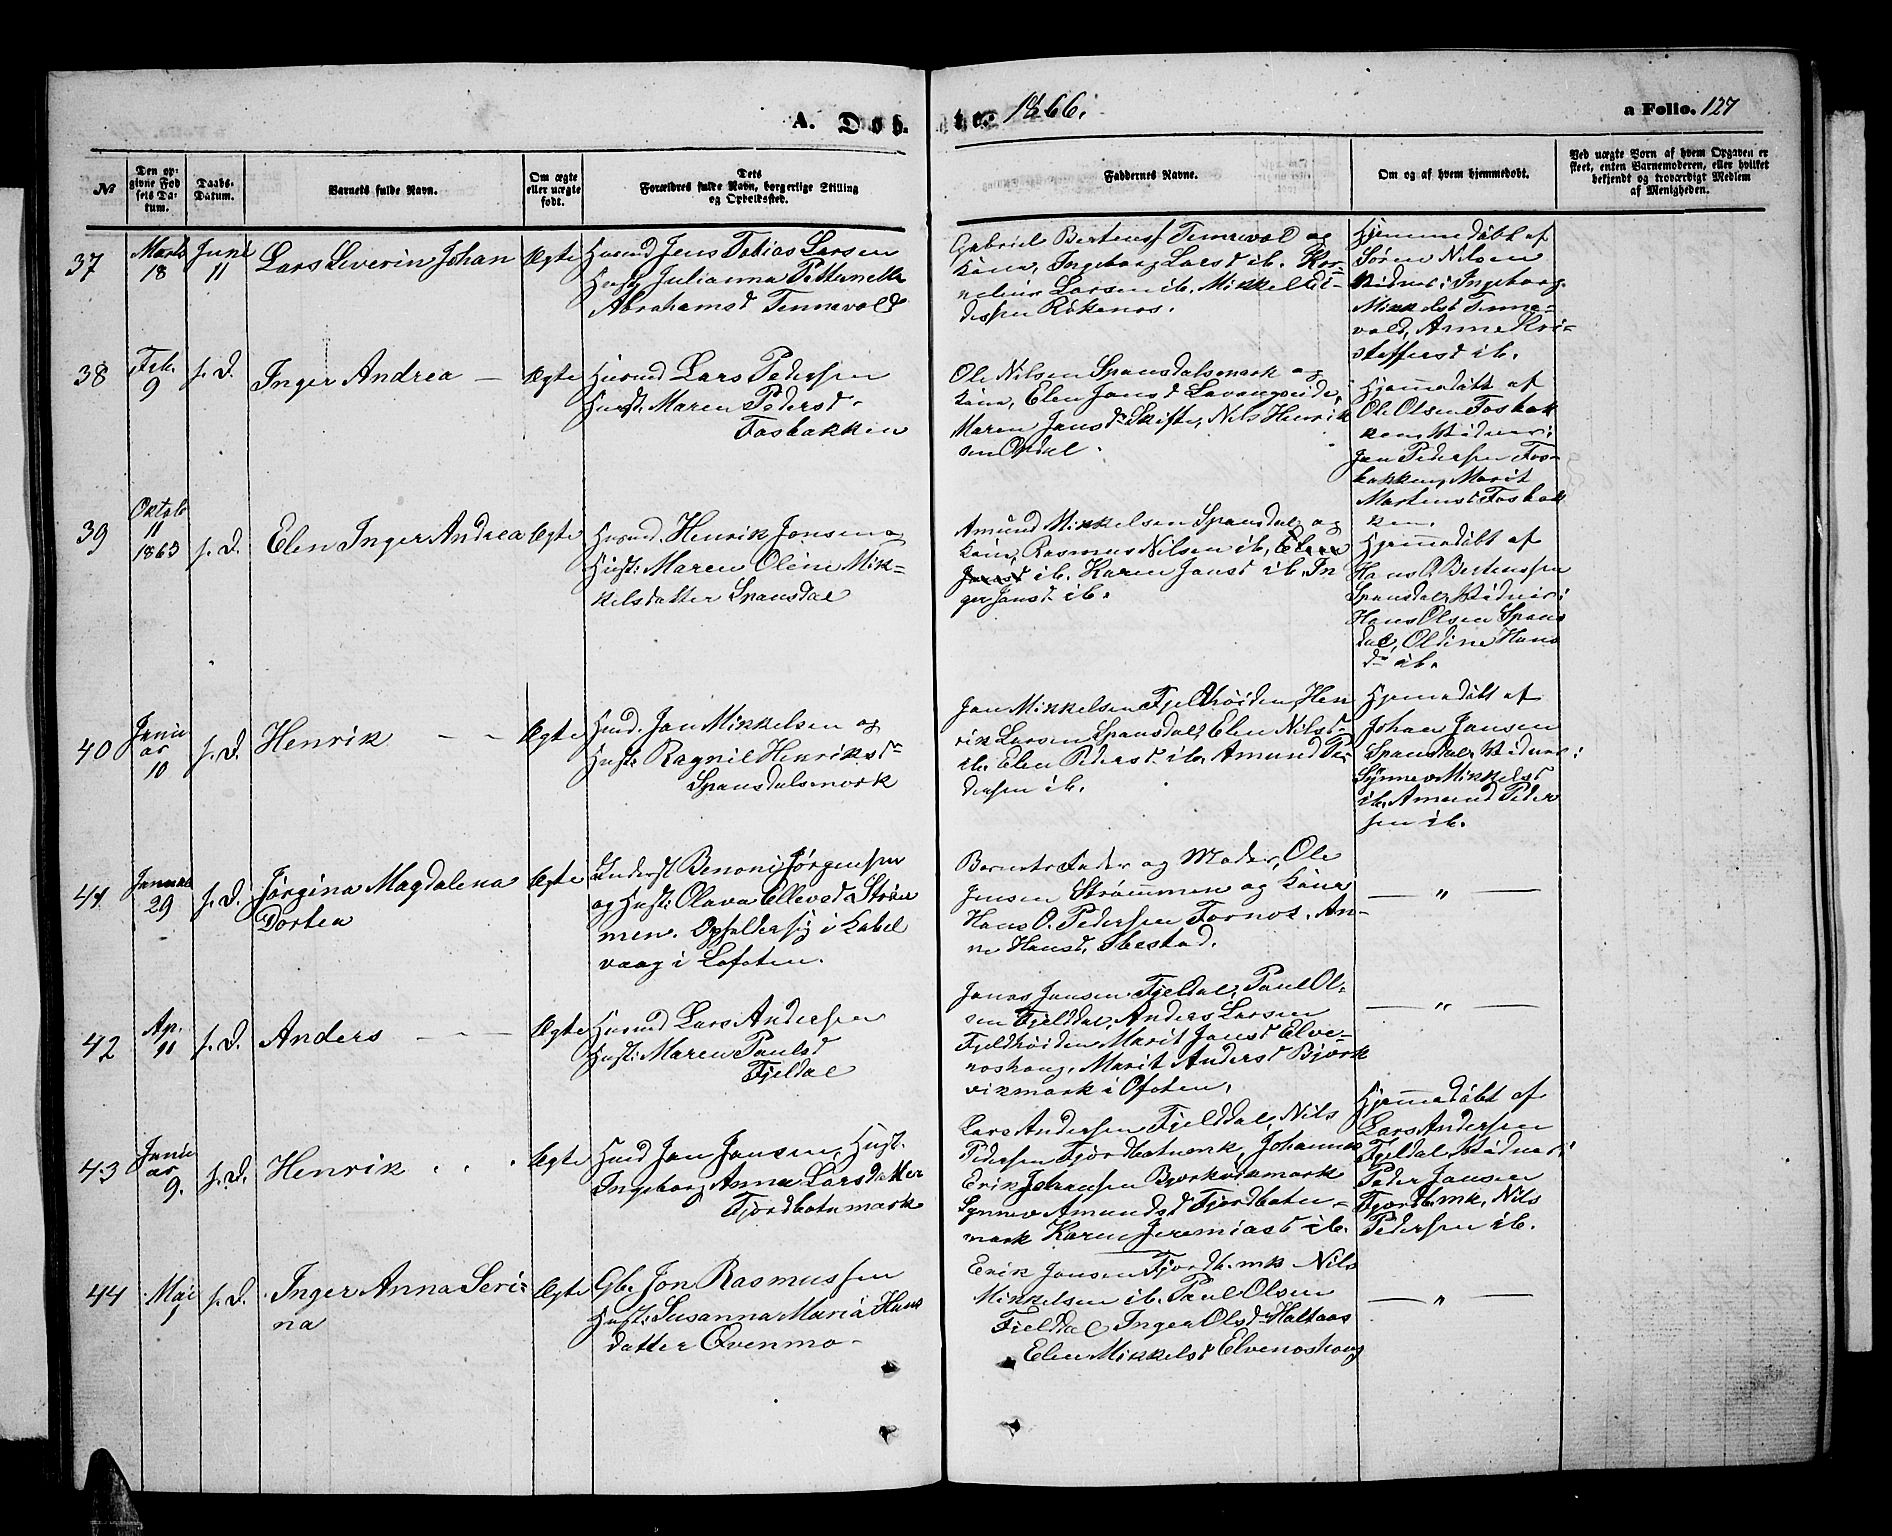 A. Døb-
te. 1866.
a Folio. 127
No
Den op-
givne Fød
sels Da-
tum.
Daabs-
Datum.
Barnets fulde Navn.
Om ægte
eller uægte
født.
Dets
Forældres fulde Navn, borgerlige Stilling
og Opholdssted.
Faddernes Navne.
Om og af hvem hjemmedøbt.
Ved uægte Børn af hvem Opgaven er
skeet, enten Barnemoderen, eller hvilket
bekjendt og troværdigt Medlem
af Menigheden.
37
Marts
18
Juni
11
Lars Severin Johan
Ægte
Husmd Jens Tobias Larsen
Hust Julianna Petternelle
Abrahamsd Tennevold
Gabriel Bertensf Tennevol og
Kone, Ingeborg Larsd ib. Kor-
nelius Larsen ib. Mikkel
Røkenes.
Hjemmedøbt af
Søren Nilsen
Vidner: Ingeborg
Mikkelsd Tenne-
vold, Anne Kri-
stoffersd ib.
38
Feb.
9
s. D.
Inger Andrea —
Ægte
Husmd Lars Pedersen
Hust. Maren Pedersd.
Fosbakken
Ole Nilsen Spansdalsmark og
Kone, Elen Jonsd Lavangseide,
Maren Jansdr Skifte, Nils Henrik
sen Ordal.
Hjemmedøbt af
Ole Olsen Fosbak
ken, Vidner:
Jan Pedersen Fos-
bakken, Marit
Martensd Fosbak
ken.
39
Oktob
11
1865
s. D.
Elen Inger Andrea
Ægte
Husmd. Henrik Jonsen og
Hust: Maren Oline Mik-
kelsdatter Spansdal
Amund Mikkelsen Spansdal og
Kone, Rasmus Nilsen ib, Elen
Jonsd ib. Karen Jansd ib. In
ger Jansd ib.
Hjemmedøbt af
Hans O. Bertenssen
Spansdal, Vidner:
Hans Olsen Spans
dal, Oldine Hans
dr ib.
40
Janu
ar
10
s. D.
Henrik — —
Ægte
Husmd. Jan Mikkelsen og
Hust: Ragnil Henriksdr
Spansdalsmork
Jon Mikkelsen Fjeldhøiden, Hen
rik Larsen Spansdal, Elen Nilsd
ib. Elen Pedersd ib. Amund Pe-
dersen ib.
Hjemmedøbt af
Johan Jansen
Spansdal, Vidner:
Synnev Mikkelsd
ib. Amund Peder
sen ib.
41
Januar
29
s. D.
Jørgina Magdalena
Dortea
Ægte
Inderst Benoni Jørgensen
og Hust: Olava Ellevsd Strøm
men. Opholder sig i Kabel
vaag i Lofoten.
Barnets Fader og Moder, Ole
Jensen Strømmen og Kone
Hans O. Pedersen Fornes. An-
ne Hansd. Ibestad.
— " —
42
Ap.
11
s. D.
Anders — —
Ægte
Husmd Lars Andersen
Hust: Maren Paulsd
Fjeldal
Jonas Jansen Fjeldal, Paul Ol-
sen Fjelddal, Anders Larsen
Fjeldhøiden Marit Jonsd Elve-
noshaug, Marit Andersd Bjørk
vikmark i Ofoten.
— " —
43
Janu
ar
9.
s. D.
Henrik
Ægte
Husmd Jan Jansen, Hust.
Ingeborg Anna Larsdatter
Fjordbotnmark
Lars Andersen Fjelddal, Nils
Pedersen Fjordbotnmk, Johannes
Erik Johansen Bjørkvikmark
Synnev Amundsd Fjordboten-
mark Karen Jeremiasd ib.
Hjemmedøbt af
Lars Andersen
Fjeldal, Vidner:
Peder Jansen
Fjordb.mk, Nils
Pedersen ib.
44
Mai
1
s. D.
Inger Anna Seri-
na
Ægte
Gbr Jon Rasmussen
Hust: Susanna Maria Hans
datter Qvenmo-
Erik Jonsen Fjordb.mk Nils
Mikkelsen ib. Paul Olsen
Fjelddal Inger Olsdr Haltaas
Elen Mikkelsd Elvenoshaug
— " —